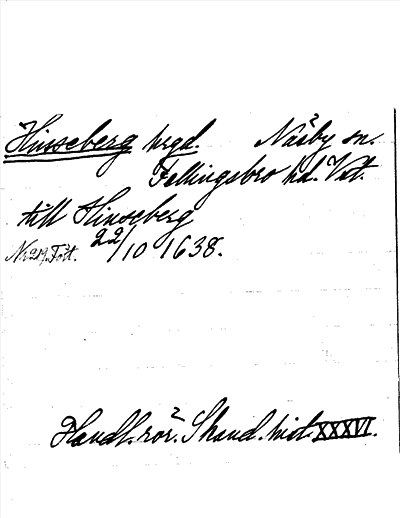 Hinseberg hrgd. Näsby sn.
Fellingsbro hd. Vst.
till Hinseberg
22/10 1638.
Handl. rör. Skand. hist. XXXVI.